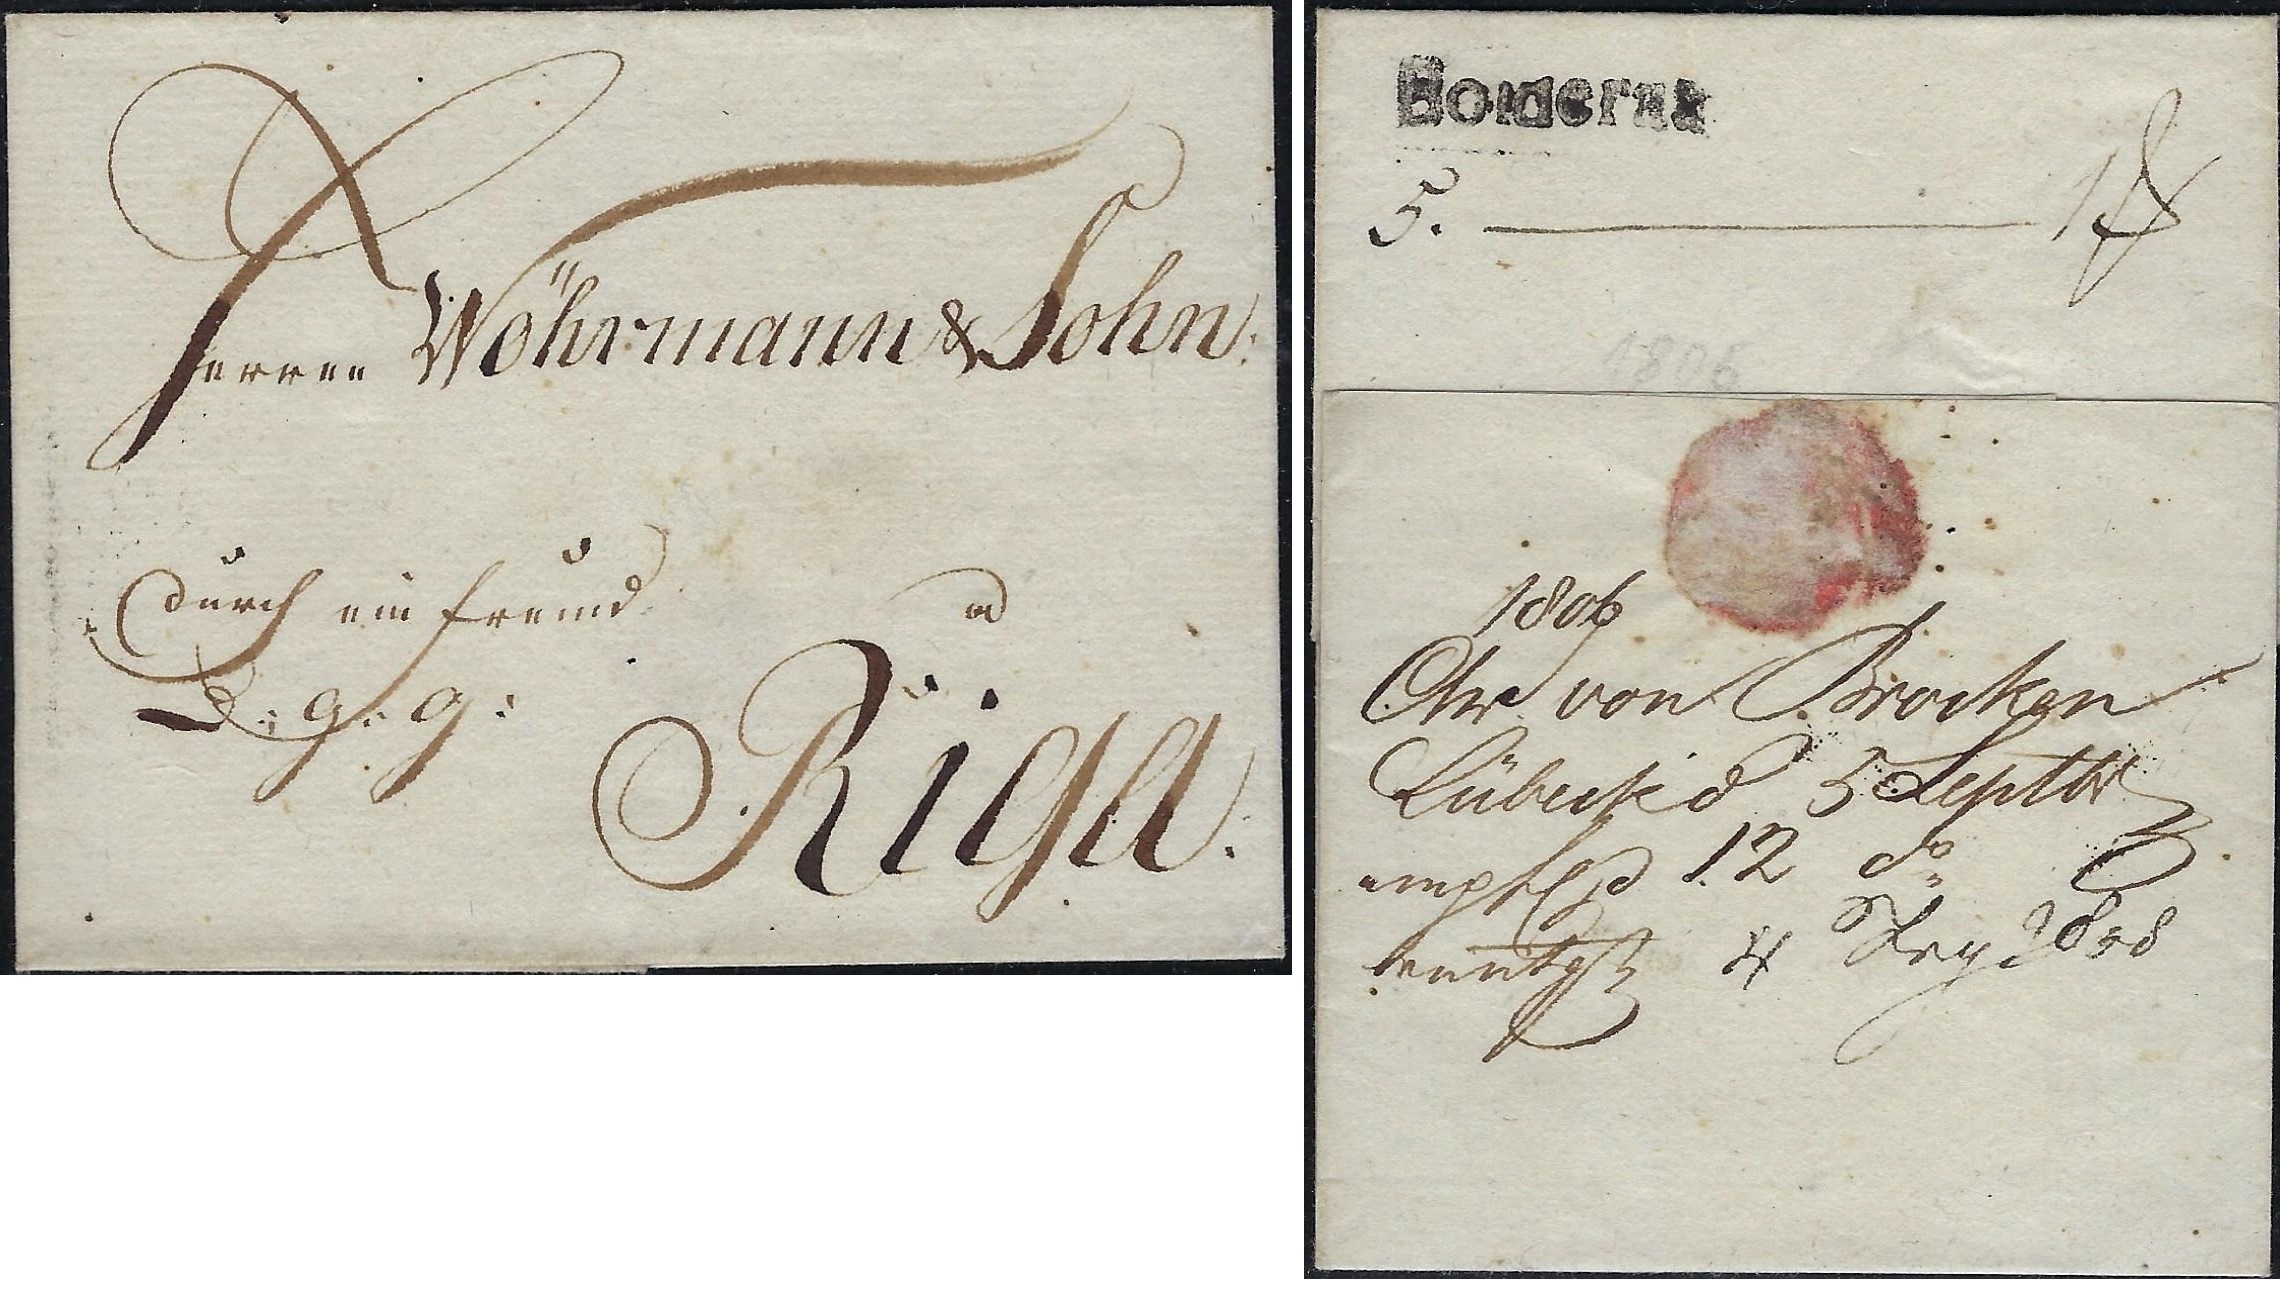 Herren Wöhrmann & Sohn.
durch ein freund
D: g: g:
a
Riga.
Bolderaa
5.
1806
1806
Chr von Brocken
Lübeck d 5 Septbr
empf d 12 do
4